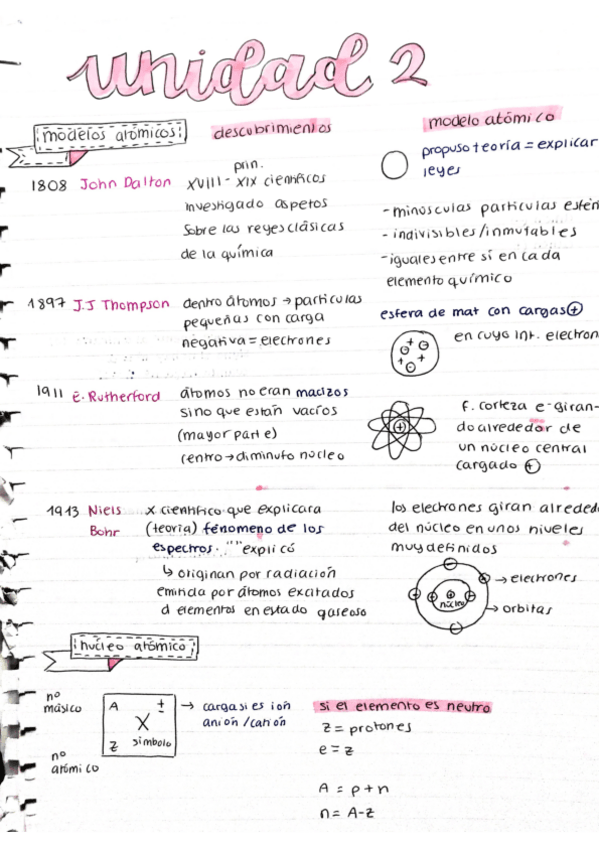 unidad 2
modelos atómicos:
descubrimientos
modelo atómico
1808 John Dalton
prin.
XVIII - XIX científicos
investigado aspetos
sobre las reyes clásicas
de la química
propuso teoría = explicar
leyes
- minúsculas partículas
- indivisibles/inmutables
- iguales entre sí en cada
elemento químico
1897 J.J Thompson
dentro átomos → partículas
pequeñas con carga
negativa = electrones
esfera de mat con cargas +
en cuyo int. electron
+ -
+ +
-
1911 E. Rutherford
átomos no eran macizos
sino que están vacíos
(mayor parte)
centro → diminuto núcleo
+
f. corteza e- giran-
do alrededor de
un núcleo central
cargado +
1913 Niels
Bohr
x científico que explicara
(teoría) fénomeno de los
espectros. """ explicó
↳ originan por radiación
emitida por átomos excitados
d elementos en estado gaseoso
los electrones giran alreded
del núcleo en unos niveles
muy definidos
→ electrones
núcleo
→ orbitas
núcleo atómico:
nº
másico
A ±
X
Z símbolo
nº
atómico
→ carga si es ión
anión/catión
si el elemento es neutro
z = protones
e = z
A = p + n
n = A - z